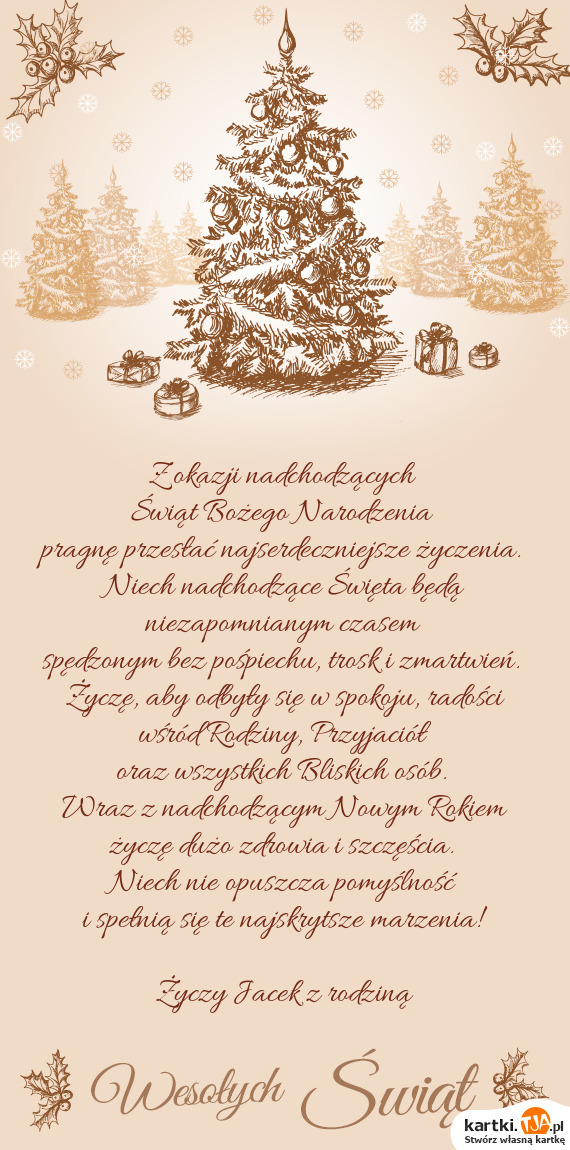 Z okazji nadchodzących
Świąt Bożego Narodzenia
pragnę przesłać najserdeczniejsze życzenia.
Niech nadchodzące Święta będą
niezapomnianym czasem
spędzonym bez pośpiechu, trosk i zmartwień.
Życzę, aby odbyły się w spokoju, radości
wśród Rodziny, Przyjaciół
oraz wszystkich Bliskich osób.
Wraz z nadchodzącym Nowym Rokiem
życzę dużo zdrowia i szczęścia.
Niech nie opuszcza pomyślność
i spełnią się te najskrytsze marzenia!
Życzy Jacek z rodziną
Wesołych Świąt
kartki.TJA.pl
Stwórz własną kartkę